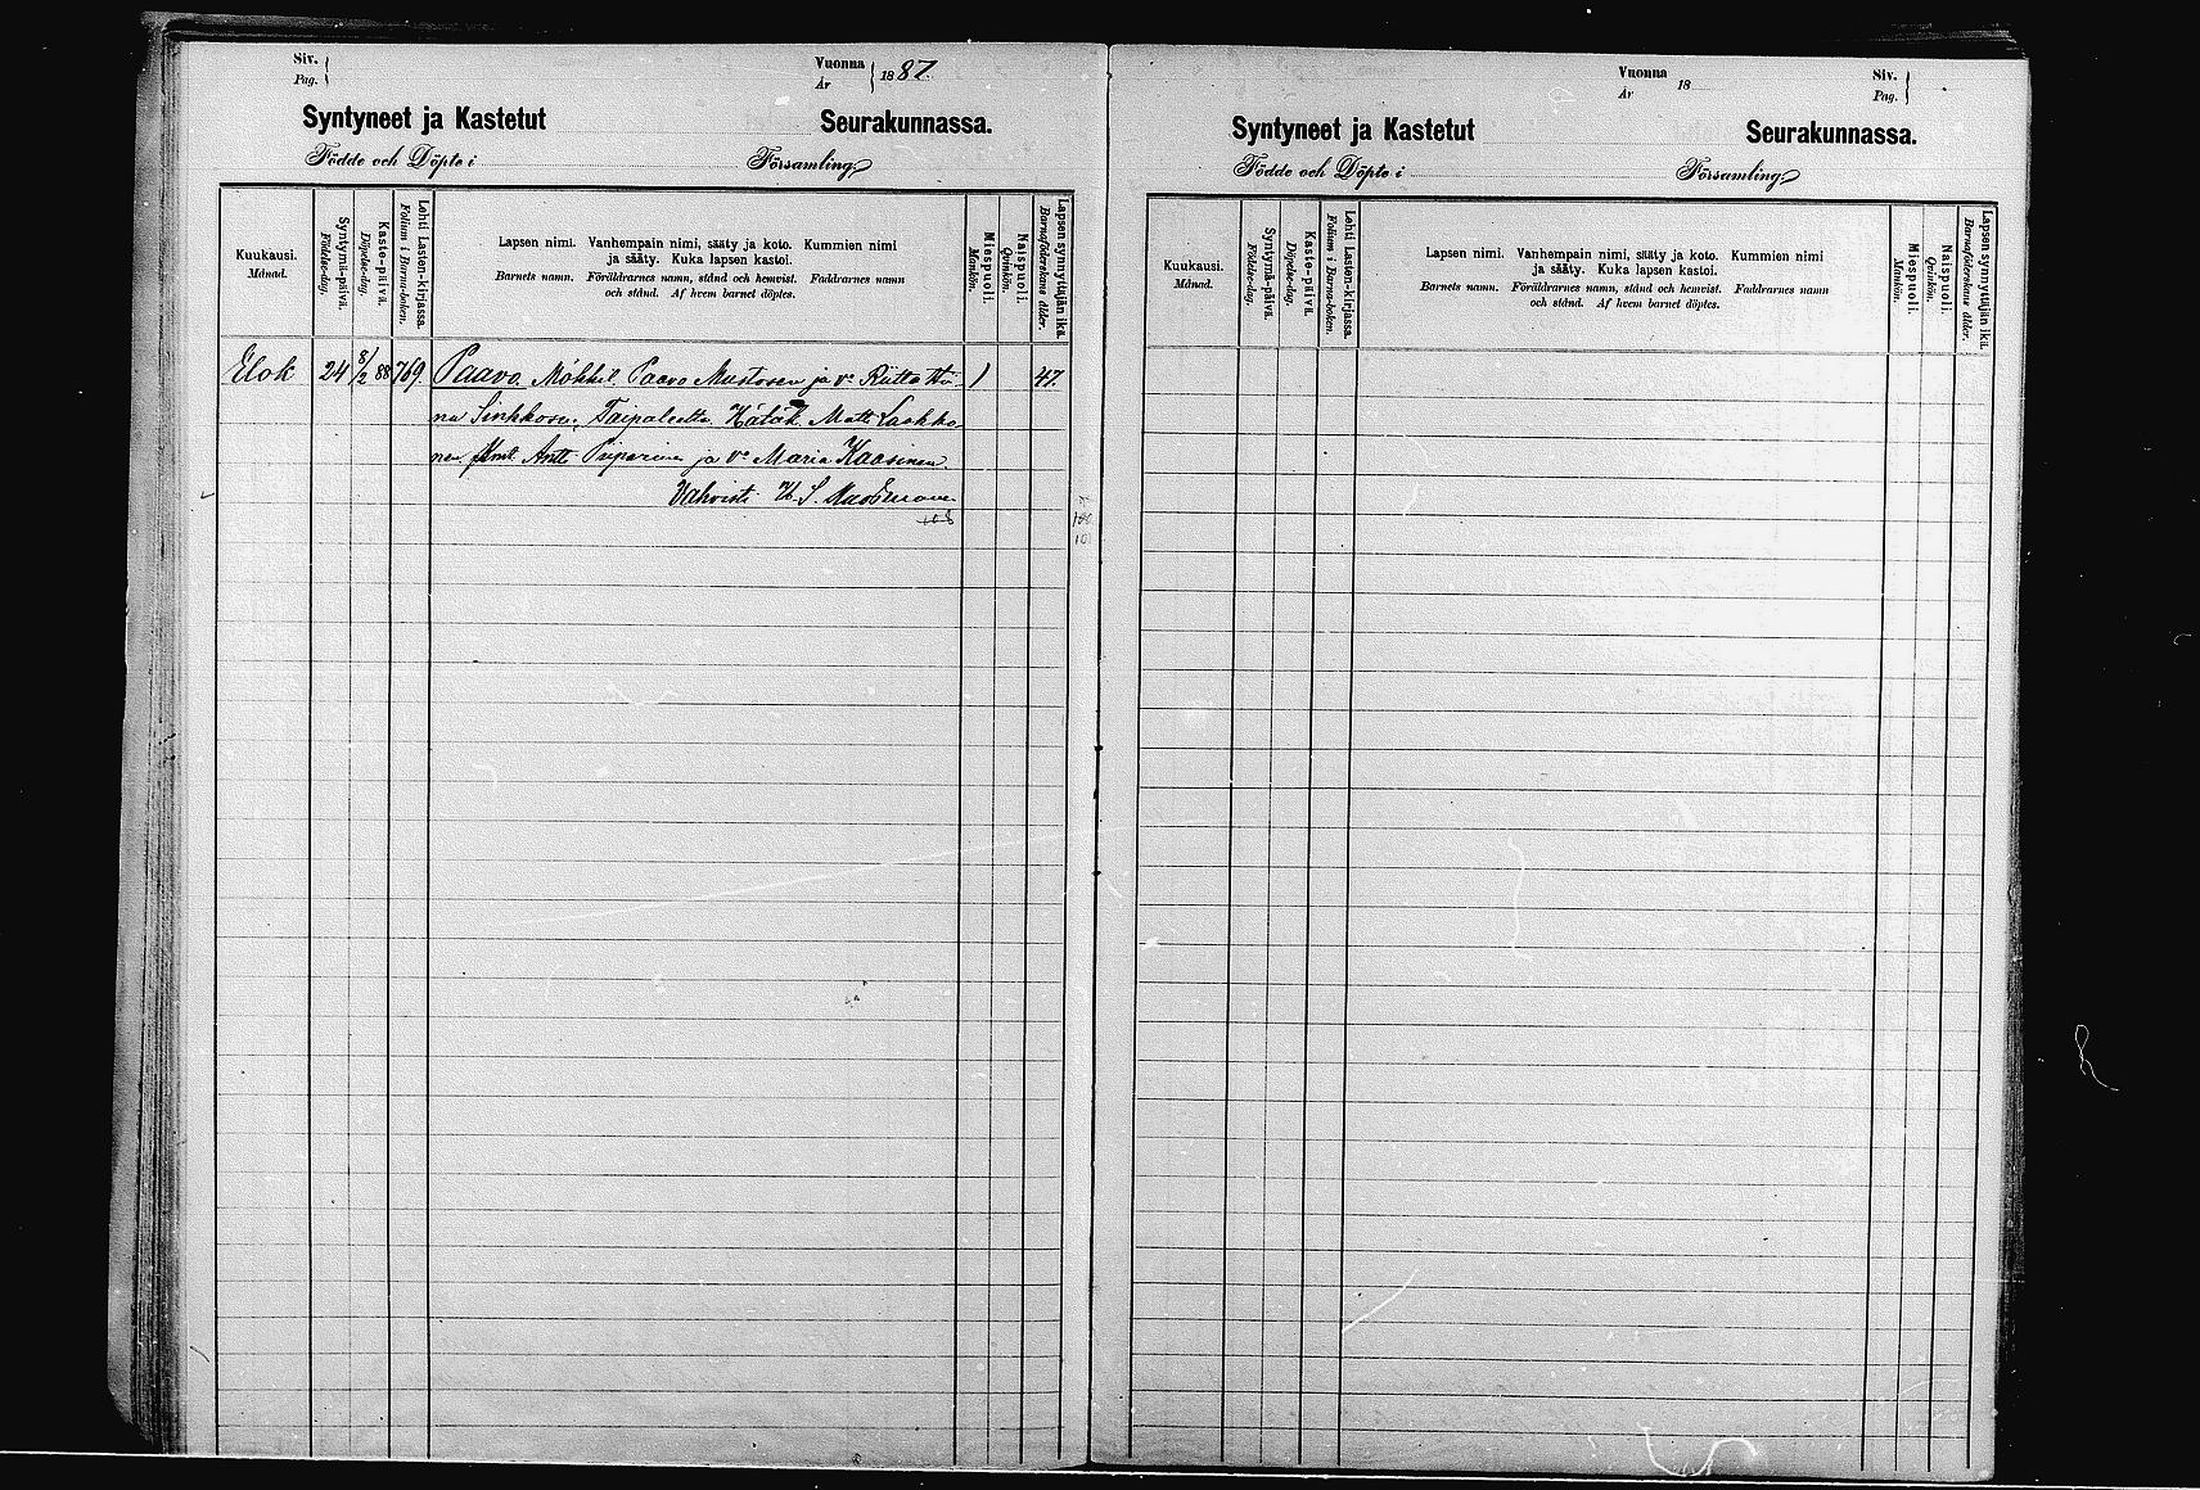 Siv.
Pag.
Vuonna
År
1887.
Syntyneet ja Kastetut Seurakunnassa.
Födde och Döpte i Församling.
Kuukausi.
Månad.
Syntymä-päivä.
Födelse-dag.
Kaste-päivä.
Döpelse-dag.
Lehti Lasten-kirjassa.
Folium i Barna-boken.
Lapsen nimi. Vanhempain nimi, sääty ja koto. Kummien nimi
ja sääty. Kuka lapsen kastoi.
Barnets namn. Föräldrarnes namn, stånd och hemvist. Faddrarnes namn
och stånd. Af hvem barnet döptes.
Miespuoli.
Mankön.
Naispuoli.
Qvinkön.
Lapsen synnyttäjän ikä.
Barnaföderskans ålder.
Elok 24 8/2 88 769. Paavo. Mökkil. Paavo Mustosen ja v:o Riitta 1 47.
na Sinkkosen, Taipaleelta. Matti Laakko-
nen. Antti Piiparinen ja v:o Maria Kaasinen.
Vahvisti H. S.
108
100
10
Vuonna
År
18
Siv.
Pag.
Syntyneet ja Kastetut Seurakunnassa.
Födde och Döpte i Församling.
Kuukausi.
Månad.
Syntymä-päivä.
Födelse-dag.
Kaste-päivä.
Döpelse-dag.
Lehti Lasten-kirjassa.
Folium i Barna-boken.
Lapsen nimi. Vanhempain nimi, sääty ja koto. Kummien nimi
ja sääty. Kuka lapsen kastoi.
Barnets namn. Föräldrarnes namn, stånd och hemvist. Faddrarnes namn
och stånd. Af hvem barnet döptes.
Miespuoli.
Mankön.
Naispuoli.
Qvinkön.
Lapsen synnyttäjän ikä.
Barnaföderskans ålder.